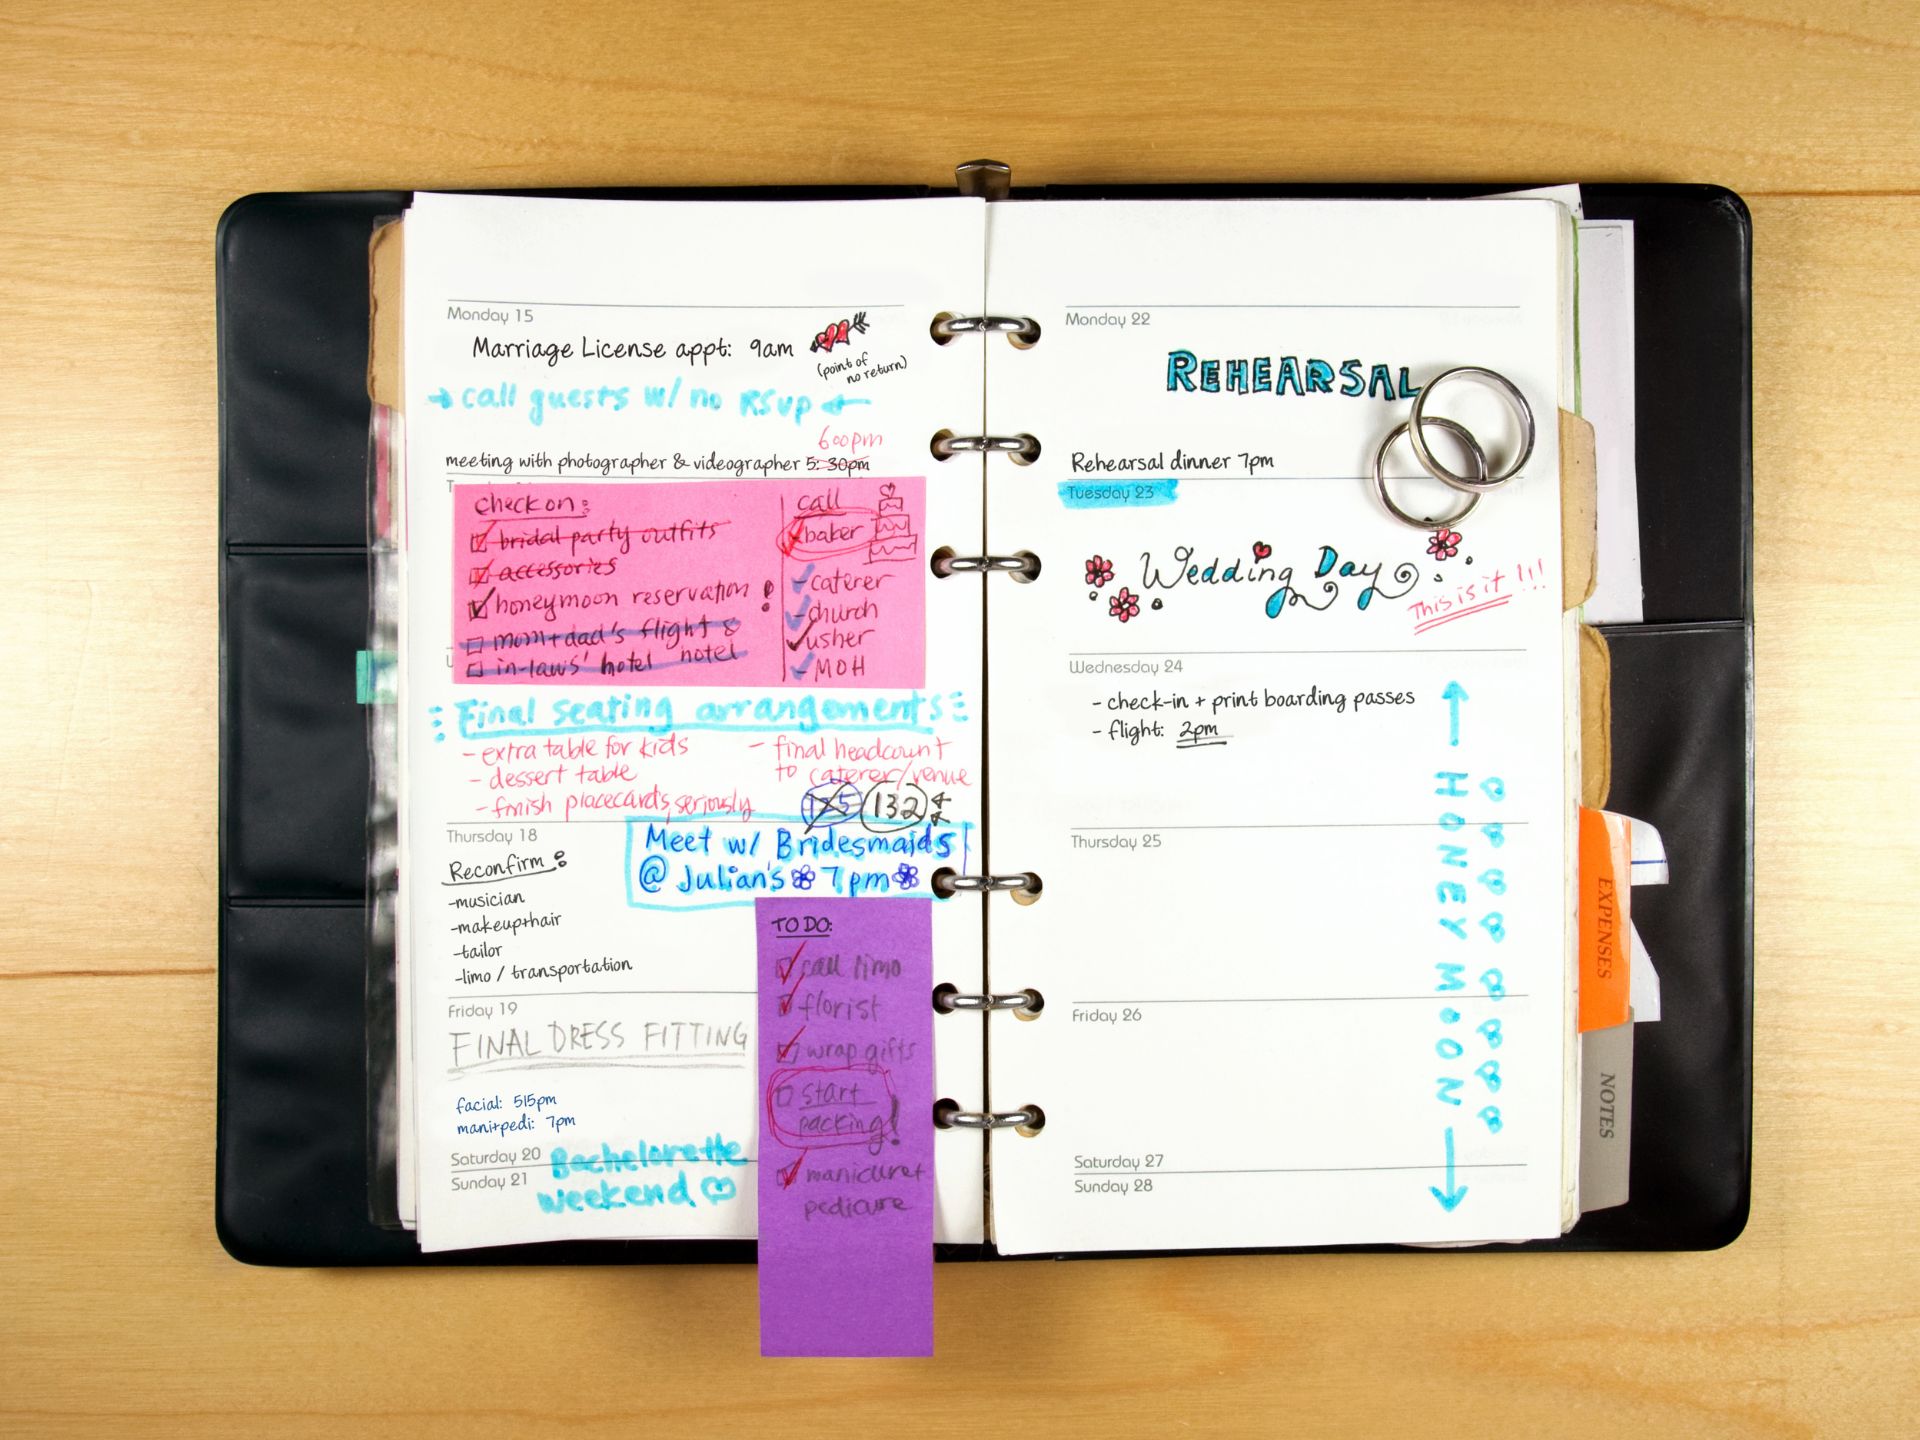 Monday 15
Marriage License appt: 9am
(point of
no return)
call guests w/ no RSVP
600pm
meeting with photographer & videographer 5:30pm
check on:
bridal party outfits
accessories
honeymoon reservation !
mom+dad's flight &
hotel
in-laws' hotel
call
baker
-caterer
-church
usher
-MOH
Final seating arrangements
- extra table for kids
- dessert table
- finish placecards, seriously
- final headcount
to caterer/venue
125 132
Thursday 18
Meet w/ Bridesmaids
@ Julian's 7pm
Reconfirm:
-musician
-makeup+hair
-tailor
-limo / transportation
Friday 19
FINAL DRESS FITTING
facial: 515pm
mani+pedi: 7pm
Saturday 20
Sunday 21
Bachelorette
weekend
TO DO:
call limo
florist
wrap gifts
start
packing!
manicure+
pedicure
Monday 22
REHEARSAL
Rehearsal dinner 7pm
Tuesday 23
Wedding Day
This is it !!!
Wednesday 24
- check-in + print boarding passes
- flight: 2pm
HONEYMOON
Thursday 25
Friday 26
Saturday 27
Sunday 28
EXPENSES
NOTES